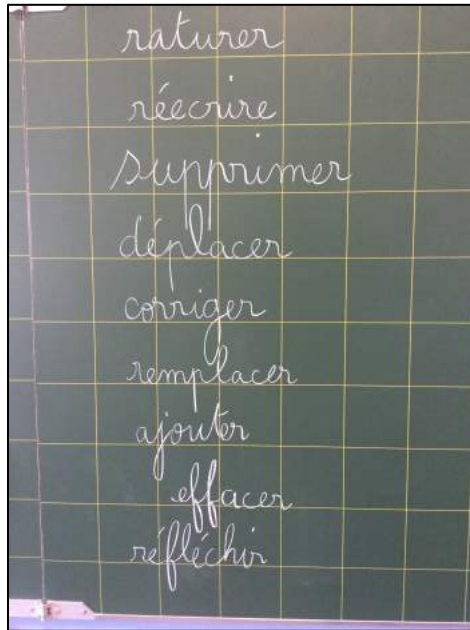 raturer
réécrire
supprimer
déplacer
corriger
remplacer
ajouter
effacer
réfléchir